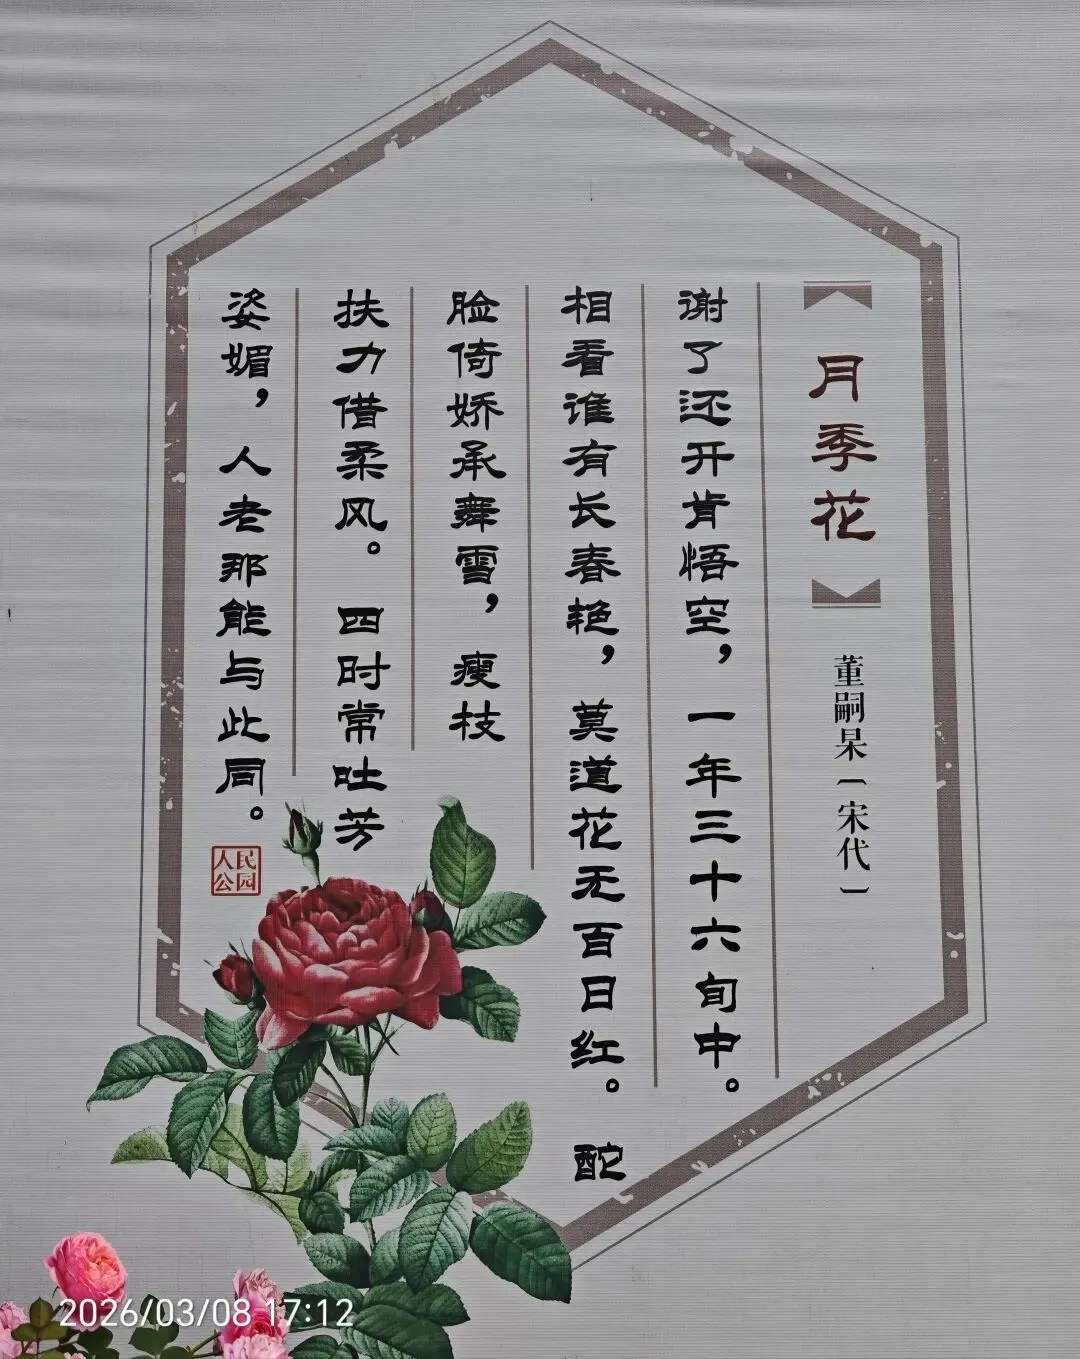 【月季花】
董嗣杲〔宋代〕
谢了还开肯悟空，一年三十六旬中。
相看谁有长春艳，莫道花无百日红。酡
脸倚娇承舞雪，瘦技
扶力借柔风。四时常吐芳
姿媚，人老那能与此同。
人民
公园
2026/03/08 17:12